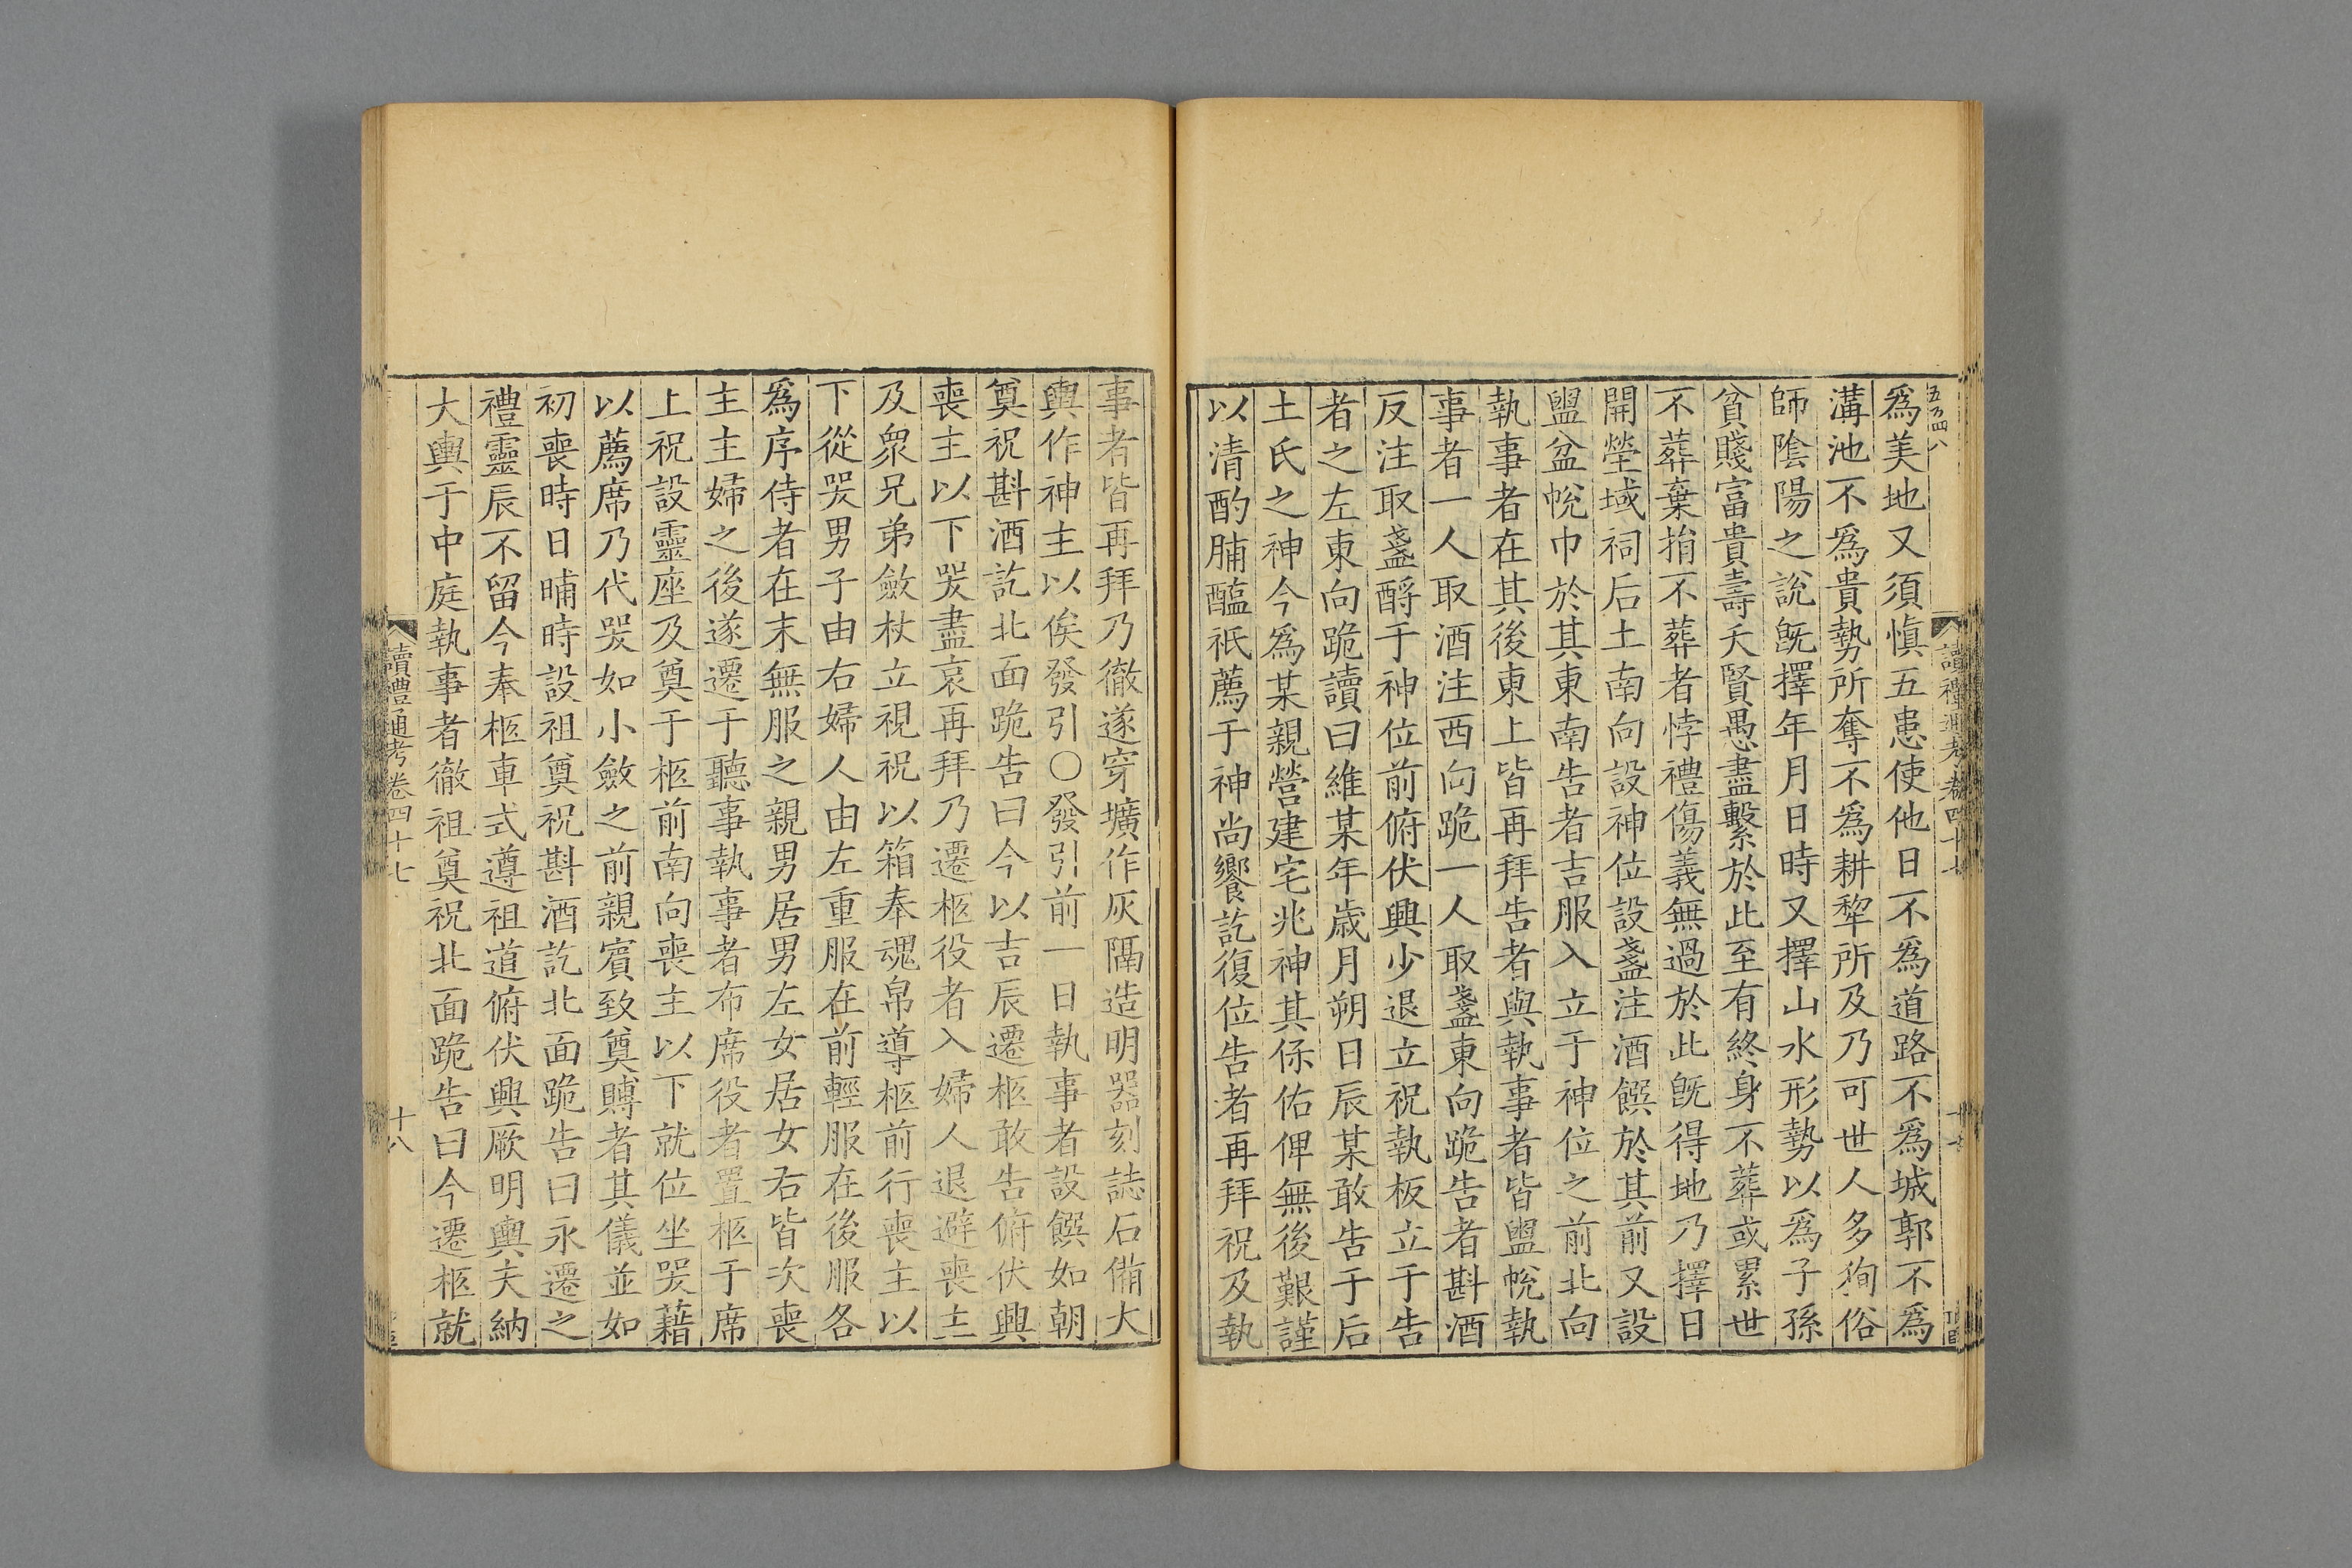 五百四八
讀禮通考卷四十七
爲美地又須愼五患使他日不爲道路不爲城郭不爲
溝池不爲貴勢所奪不爲耕犂所及乃可世人多狥俗
師陰陽之說旣擇年月日時又擇山水形勢以爲子孫
貧賤富貴壽夭賢愚盡繫於此至有終身不葬或累世
不葬棄捐不葬者悖禮傷義無過於此旣得地乃擇日
開塋域祠后土南向設神位設盞注酒饌於其前又設
盥盆帨巾於其東南告者吉服入立于神位之前北向
執事者在其後東上皆再拜告者與執事者皆盥帨執
事者一人取酒注西向跪一人取盞東向跪告者斟酒
反注取盞酹于神位前俯伏興少退立祝執板立于告
者之左東向跪讀曰維某年歲月朔日辰某敢告于后
土氏之神今爲某親營建宅兆神其保佑俾無後艱謹
以清酌脯醢祇薦于神尚饗訖復位告者再拜祝及執
事者皆再拜乃徹遂穿壙作灰隔造明器刻誌石備大
輿作神主以俟發引○發引前一日執事者設饌如朝
奠祝斟酒訖北面跪告曰今以吉辰遷柩敢告俯伏興
喪主以下哭盡哀再拜乃遷柩役者入婦人退避喪主
及衆兄弟斂杖立視祝以箱奉魂帛導柩前行喪主以
下從哭男子由右婦人由左重服在前輕服在後服各
爲序侍者在末無服之親男居男左女居女右皆次喪
主主婦之後遂遷于聽事執事者布席役者置柩于席
上祝設靈座及奠于柩前南向喪主以下就位坐哭藉
以薦席乃代哭如小斂之前親賓致奠賻者其儀並如
初喪時日晡時設祖奠祝斟酒訖北面跪告曰永遷之
禮靈辰不留今奉柩車式遵祖道俯伏興厥明輿夫納
大輿于中庭執事者徹祖奠祝北面跪告曰今遷柩就
讀禮通考卷四十七
十八